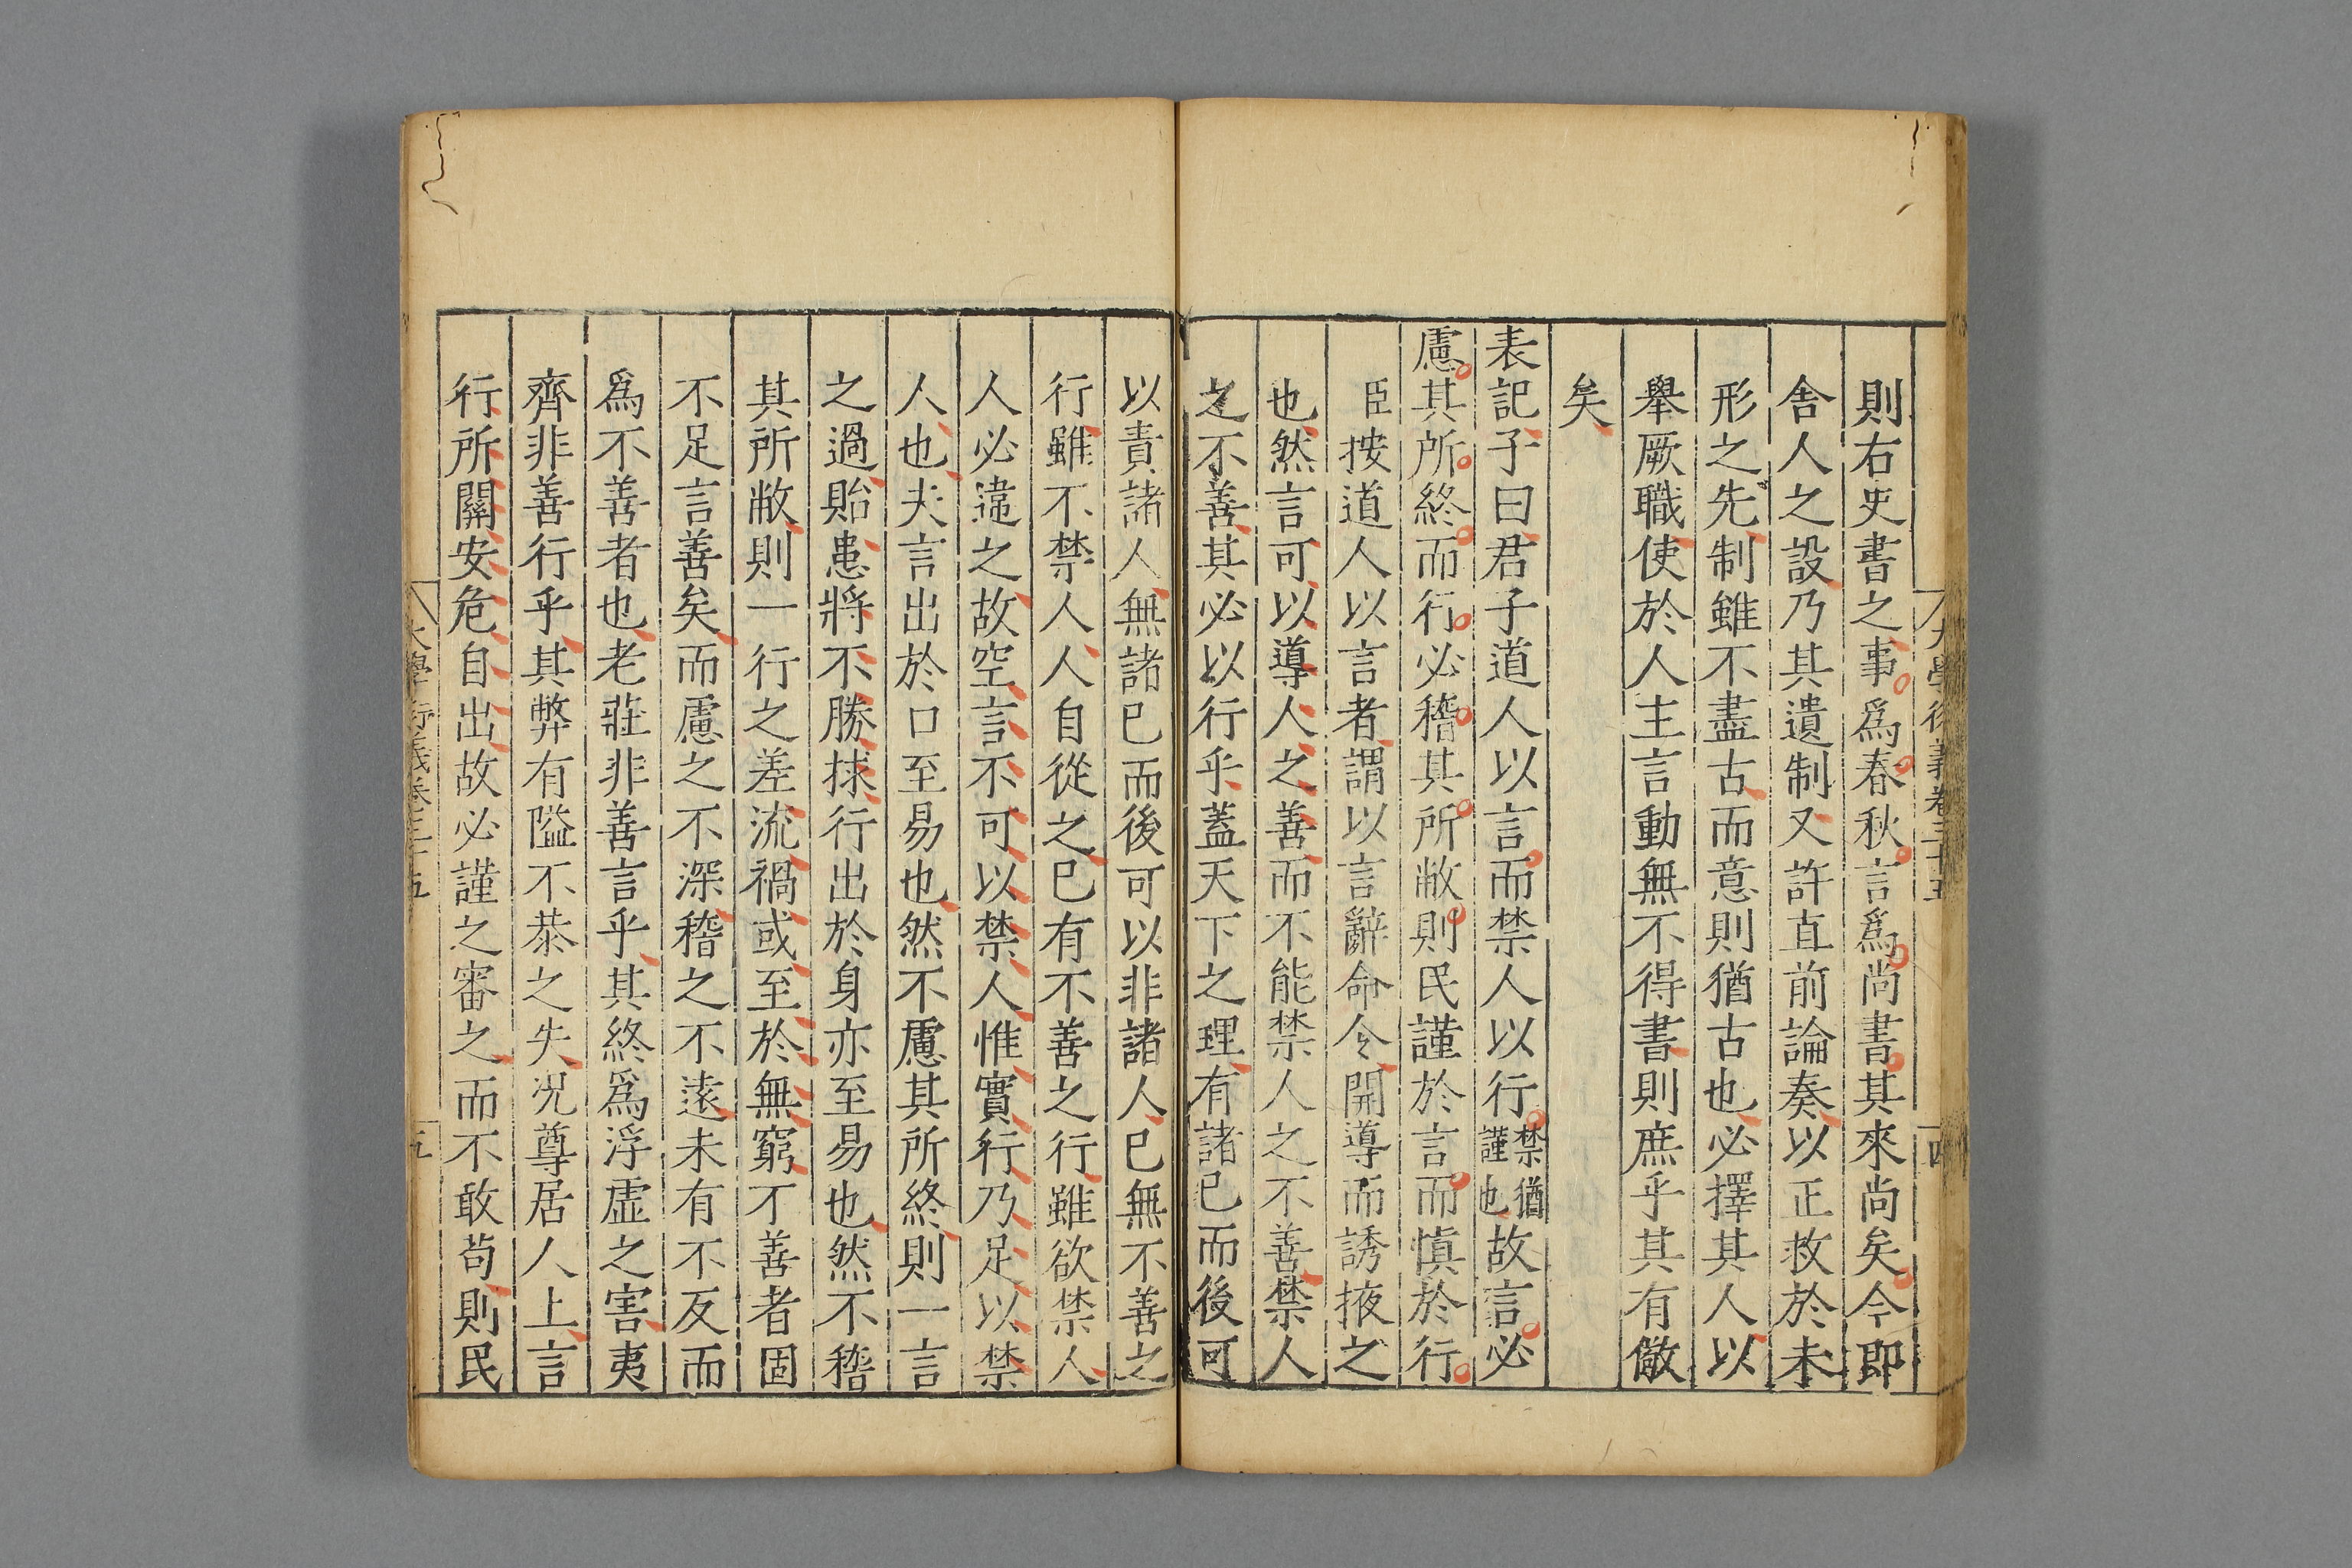 則右史書之事爲春秋言爲尚書其來尚矣今即
舍人之設乃其遺制又許直前論奏以正救於未
形之先制雖不盡古而意則猶古也必擇其人以
舉厥職使於人主言動無不得書則庶乎其有儆
矣
表記子曰君子道人以言而禁人以行禁猶謹也故言必
慮其所終而行必稽其所敝則民謹於言而慎於行
臣按道人以言者謂以言辭命令開導而誘掖之
也然言可以導人之善而不能禁人之不善禁人
之不善其必以行乎蓋天下之理有諸已而後可
以責諸人無諸已而後可以非諸人已無不善之
行雖不禁人人自從之已有不善之行雖欲禁人
人必違之故空言不可以禁人惟實行乃足以禁
人也夫言出於口至易也然不慮其所終則一言
之過貽患將不勝捄行出於身亦至易也然不稽
其所敝則一行之差流禍或至於無窮不善者固
不足言善矣而慮之不深稽之不遠未有不反而
爲不善者也老莊非善言乎其終爲浮虛之害夷
齊非善行乎其弊有隘不恭之失况尊居人上言
行所關安危自出故必謹之審之而不敢苟則民
大學衍義卷三十五
四
大學衍義卷三十五
五